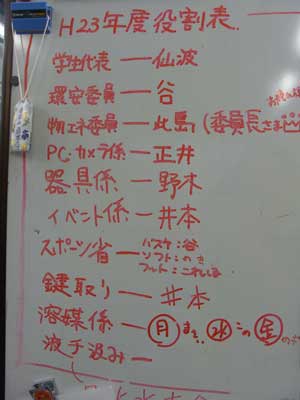 H23年度役割表
学生代表 — 仙波
環安委員 — 谷
物エネ委員 — 此島 (委員長さま
PC・カメラ係 — 正井
器具係 — 野木
イベント係 — 井本
スポーツ省 — バスケ:谷
ソフト:のぎ
フット:これしま
鍵取り — 井本
溶媒係 — 月 まさ 水 この 金 のぎ
液チ汲み —